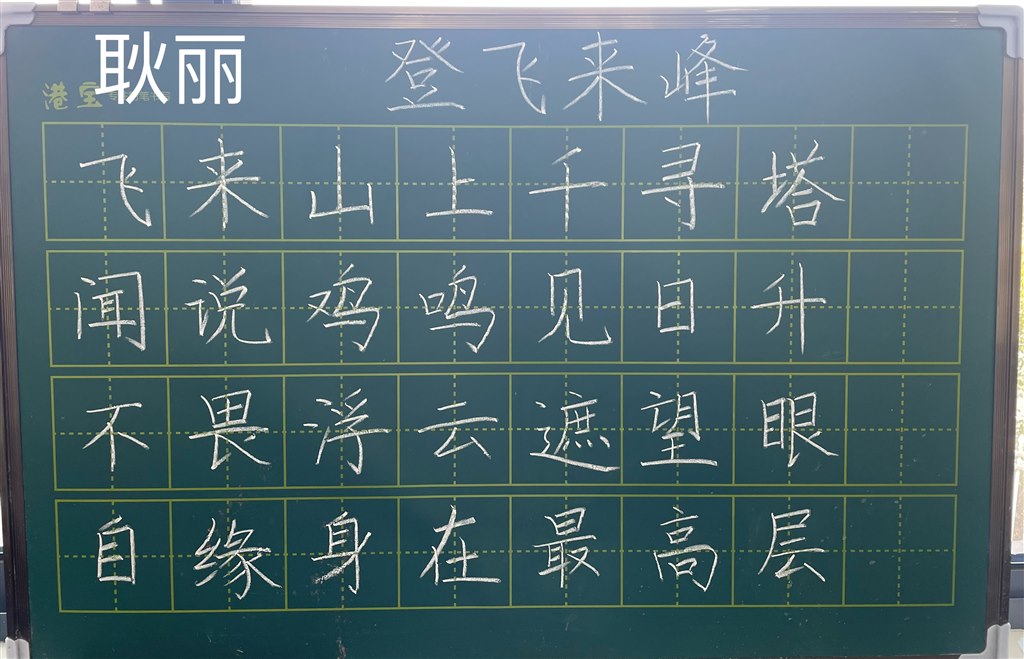 耿丽
登飞来峰
港宝
飞来山上千寻塔
闻说鸡鸣见日升
不畏浮云遮望眼
自缘身在最高层